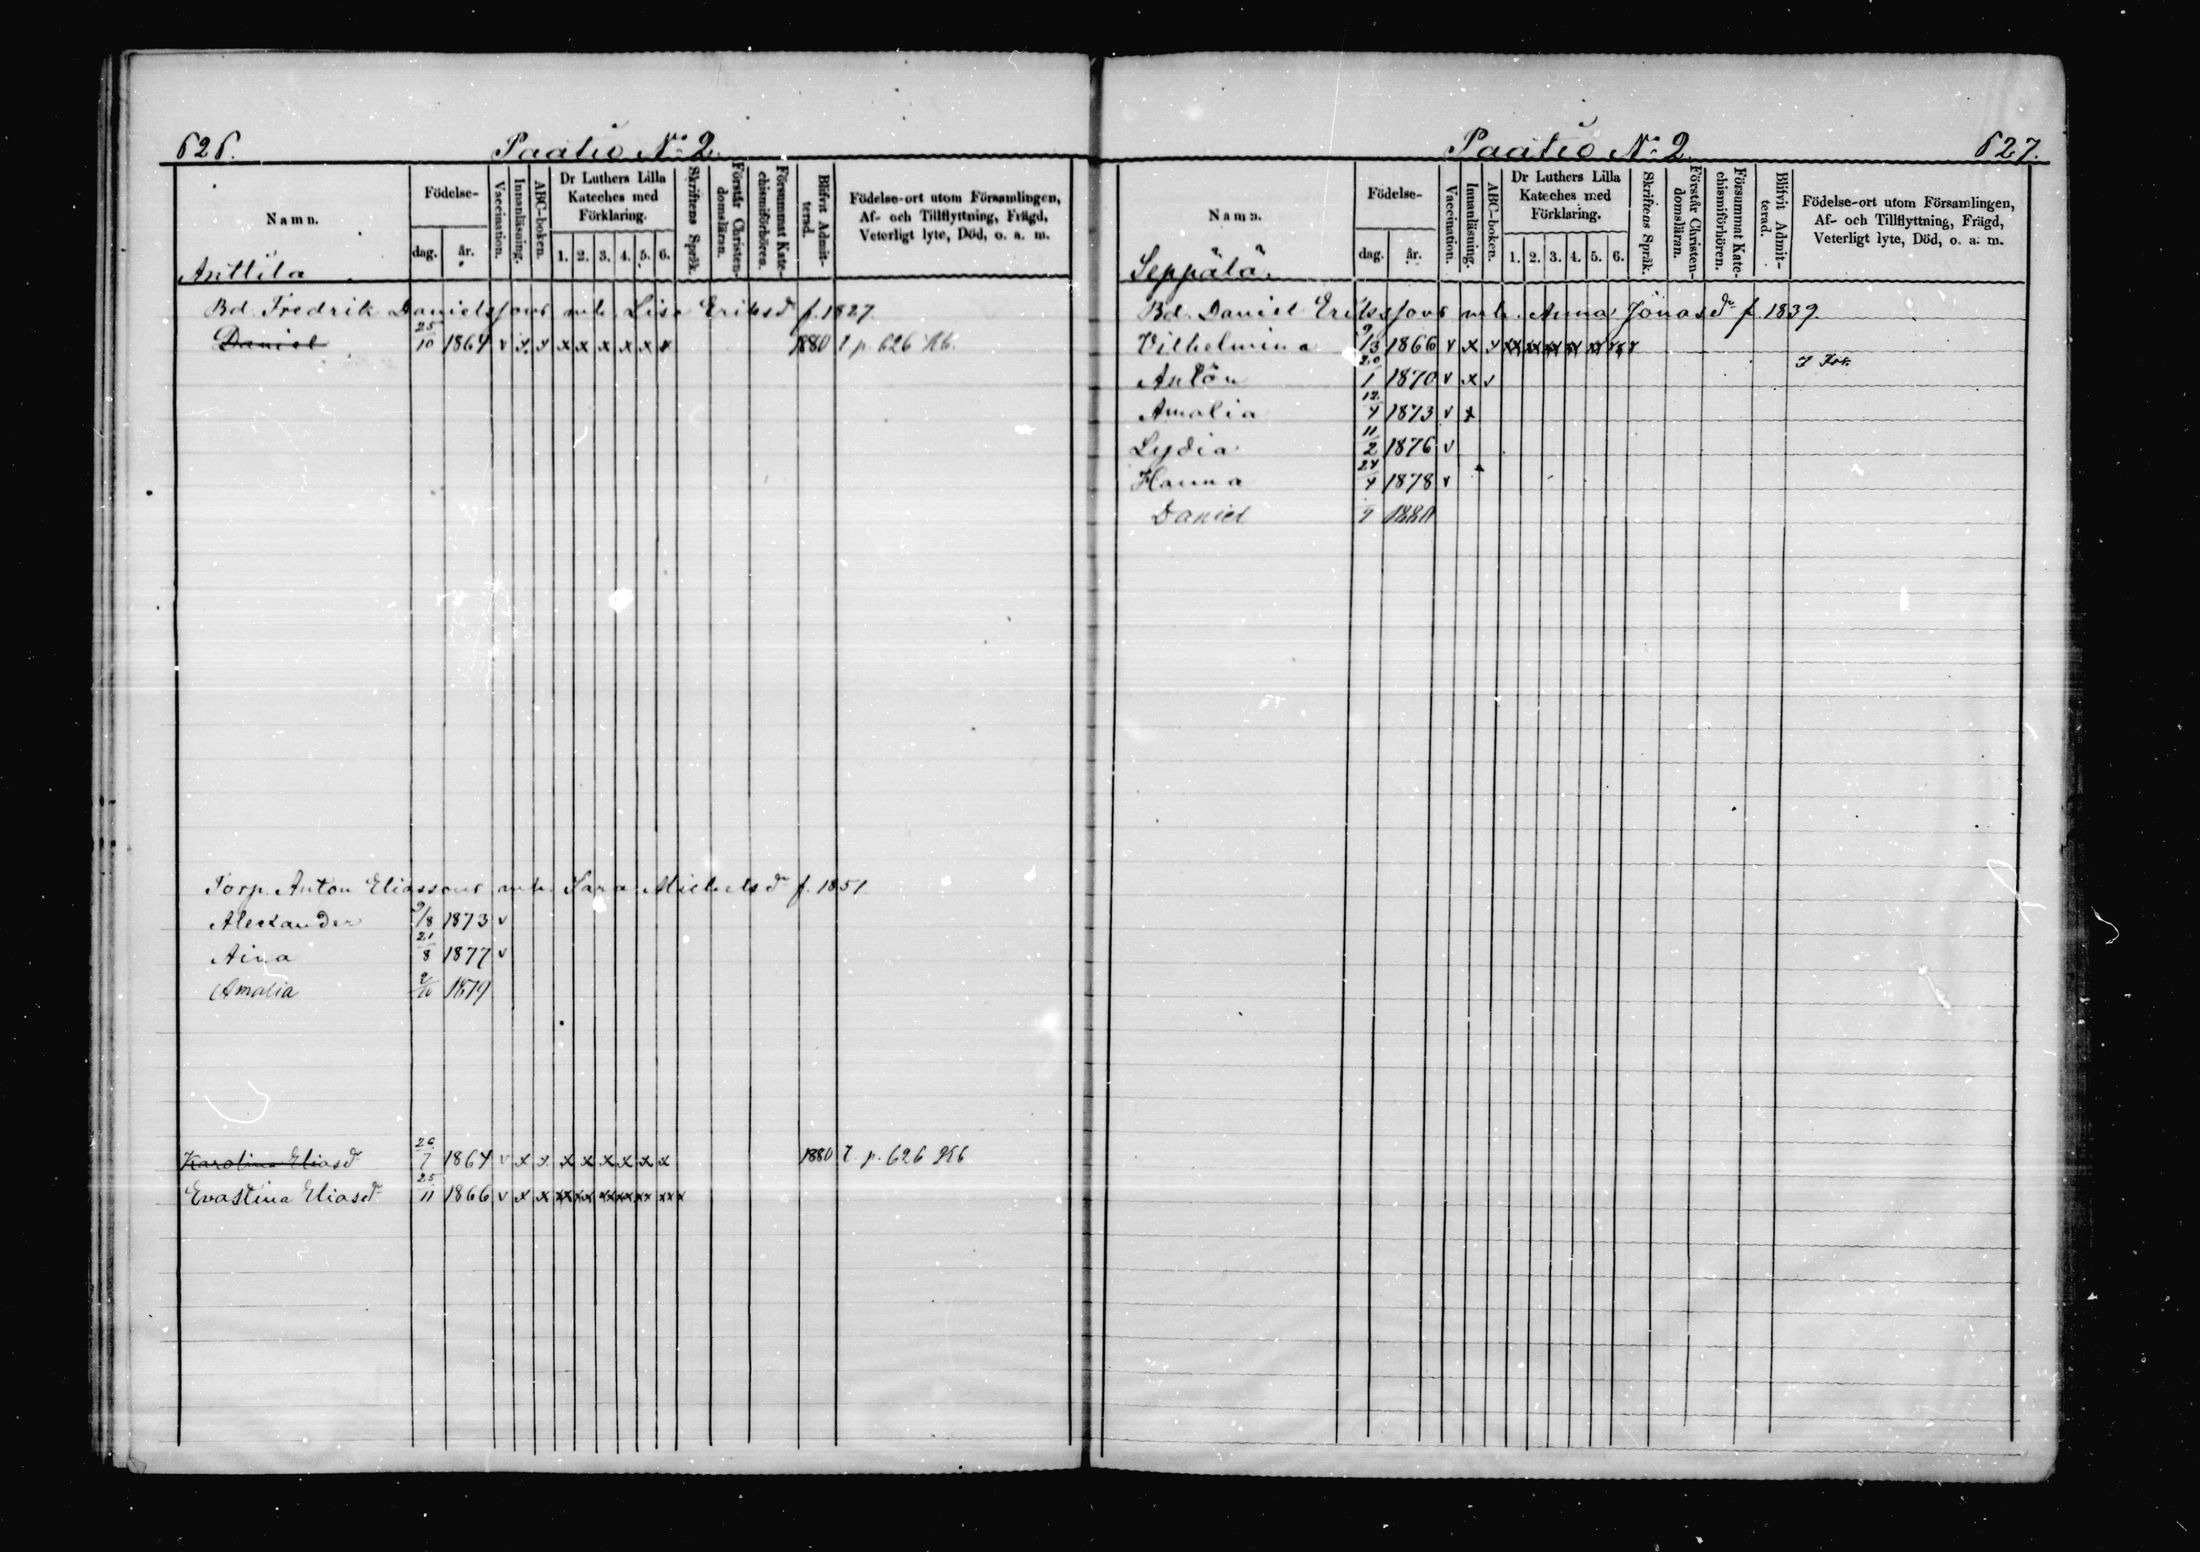 626.
Paatio No 2.
Namn.
Födelse-
dag.
år.
Vaccination.
Innanläsning.
ABC-boken.
Dr Luthers Lilla Kateches med Förklaring.
1. 2. 3. 4. 5. 6.
Skriftens Språk.
Förstår Christendomsläran.
Försummat Katechismiförhören.
Blifvit Admitterad.
Födelse-ort utom Församlingen,
Af- och Tillflyttning, Frägd,
Veterligt lyte, Död, o. a. m.
Anttila
Bd. Fredrik Danielssons m. h. Lisa Eriksd f. 1827
Daniel 25/10 1864 v x x x x x x x x 1880 t. p. 626 Kb.
Torp. Anton Eliassons m. h. Sara Michelsdr f. 1851
Alexander 9/8 1873 v
Aina 21/8 1877 v
Amalia 2/10 1879
Karolina Eliasdr 26/7 1864 v x x x x x x x x 1880 t. p. 626 Kb
Evastina Eliasdr 25/11 1866 v x x xx xx xx xx xx xxx
Paatio No 2.
627.
Namn.
Födelse-
dag.
år.
Vaccination.
Innanläsning.
ABC-boken.
Dr Luthers Lilla Kateches med Förklaring.
1. 2. 3. 4. 5. 6.
Skriftens Språk.
Förstår Christendomsläran.
Försummat Katechismiförhören.
Blifvit Admitterad.
Födelse-ort utom Församlingen,
Af- och Tillflyttning, Frägd,
Veterligt lyte, Död, o. a. m.
Seppälä.
Bd. Daniel Erikssons m. h. Anna Jonasdr f. 1839.
Vilhelmina 9/3 1866 v x v xx xx xx xx xx xxx
Anton 20/1 1870 v x v
Amalia 12/4 1873 v x
Lydia 11/2 1876 v
Hanna 24/4 1878 v
Daniel 1880